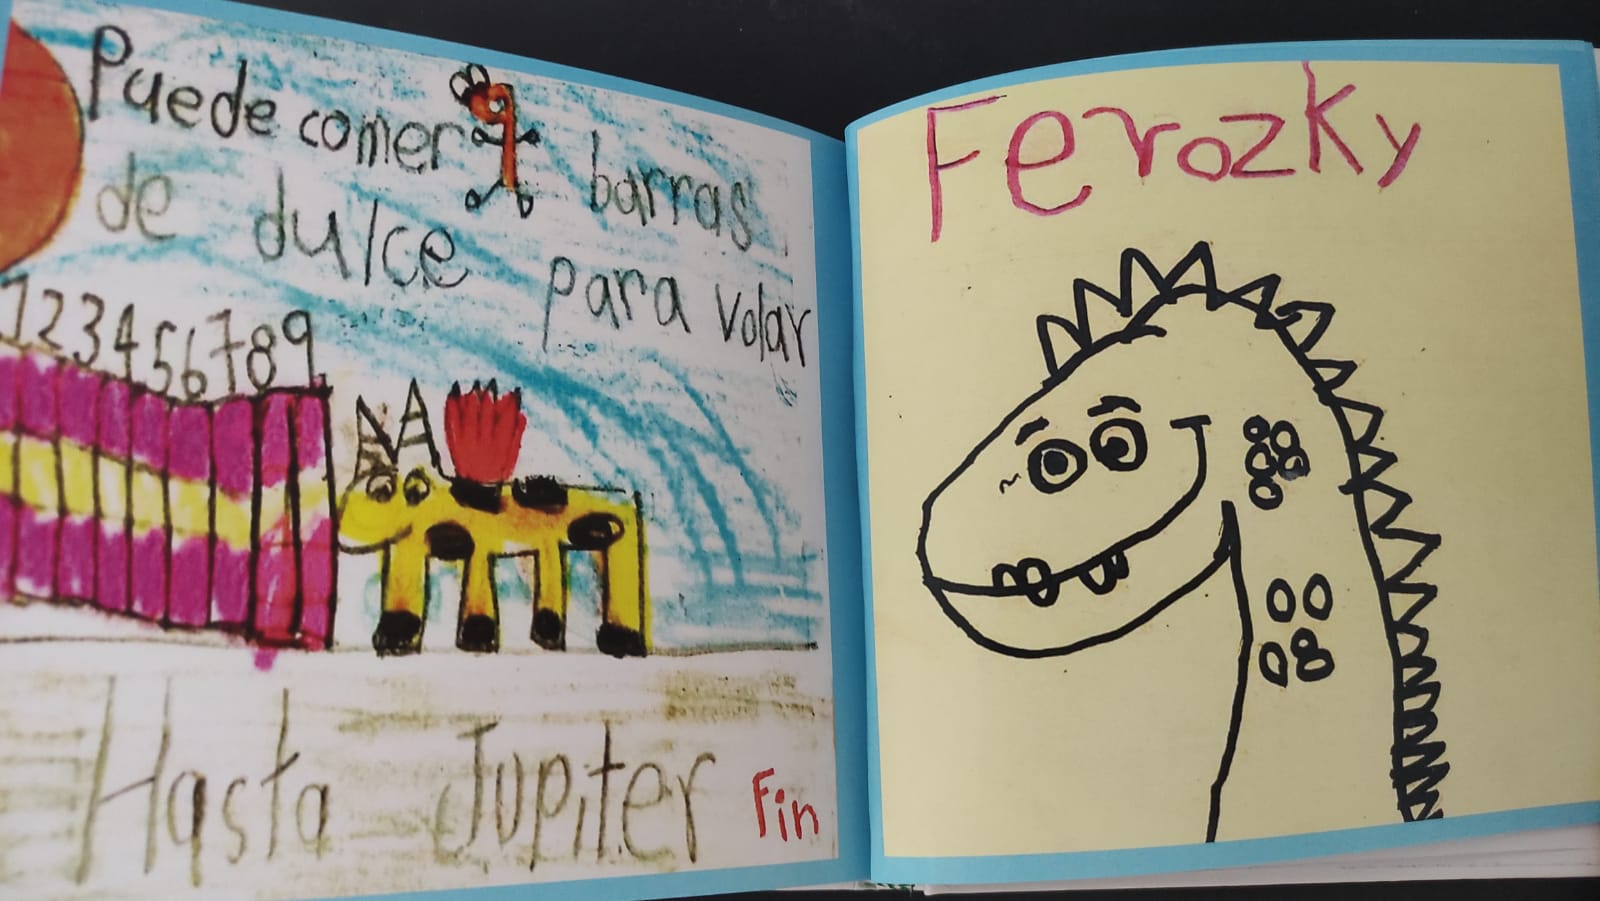 Puede comer barras
de dulce para volar
123456789
Hasta Jupiter
Fin
Ferozky